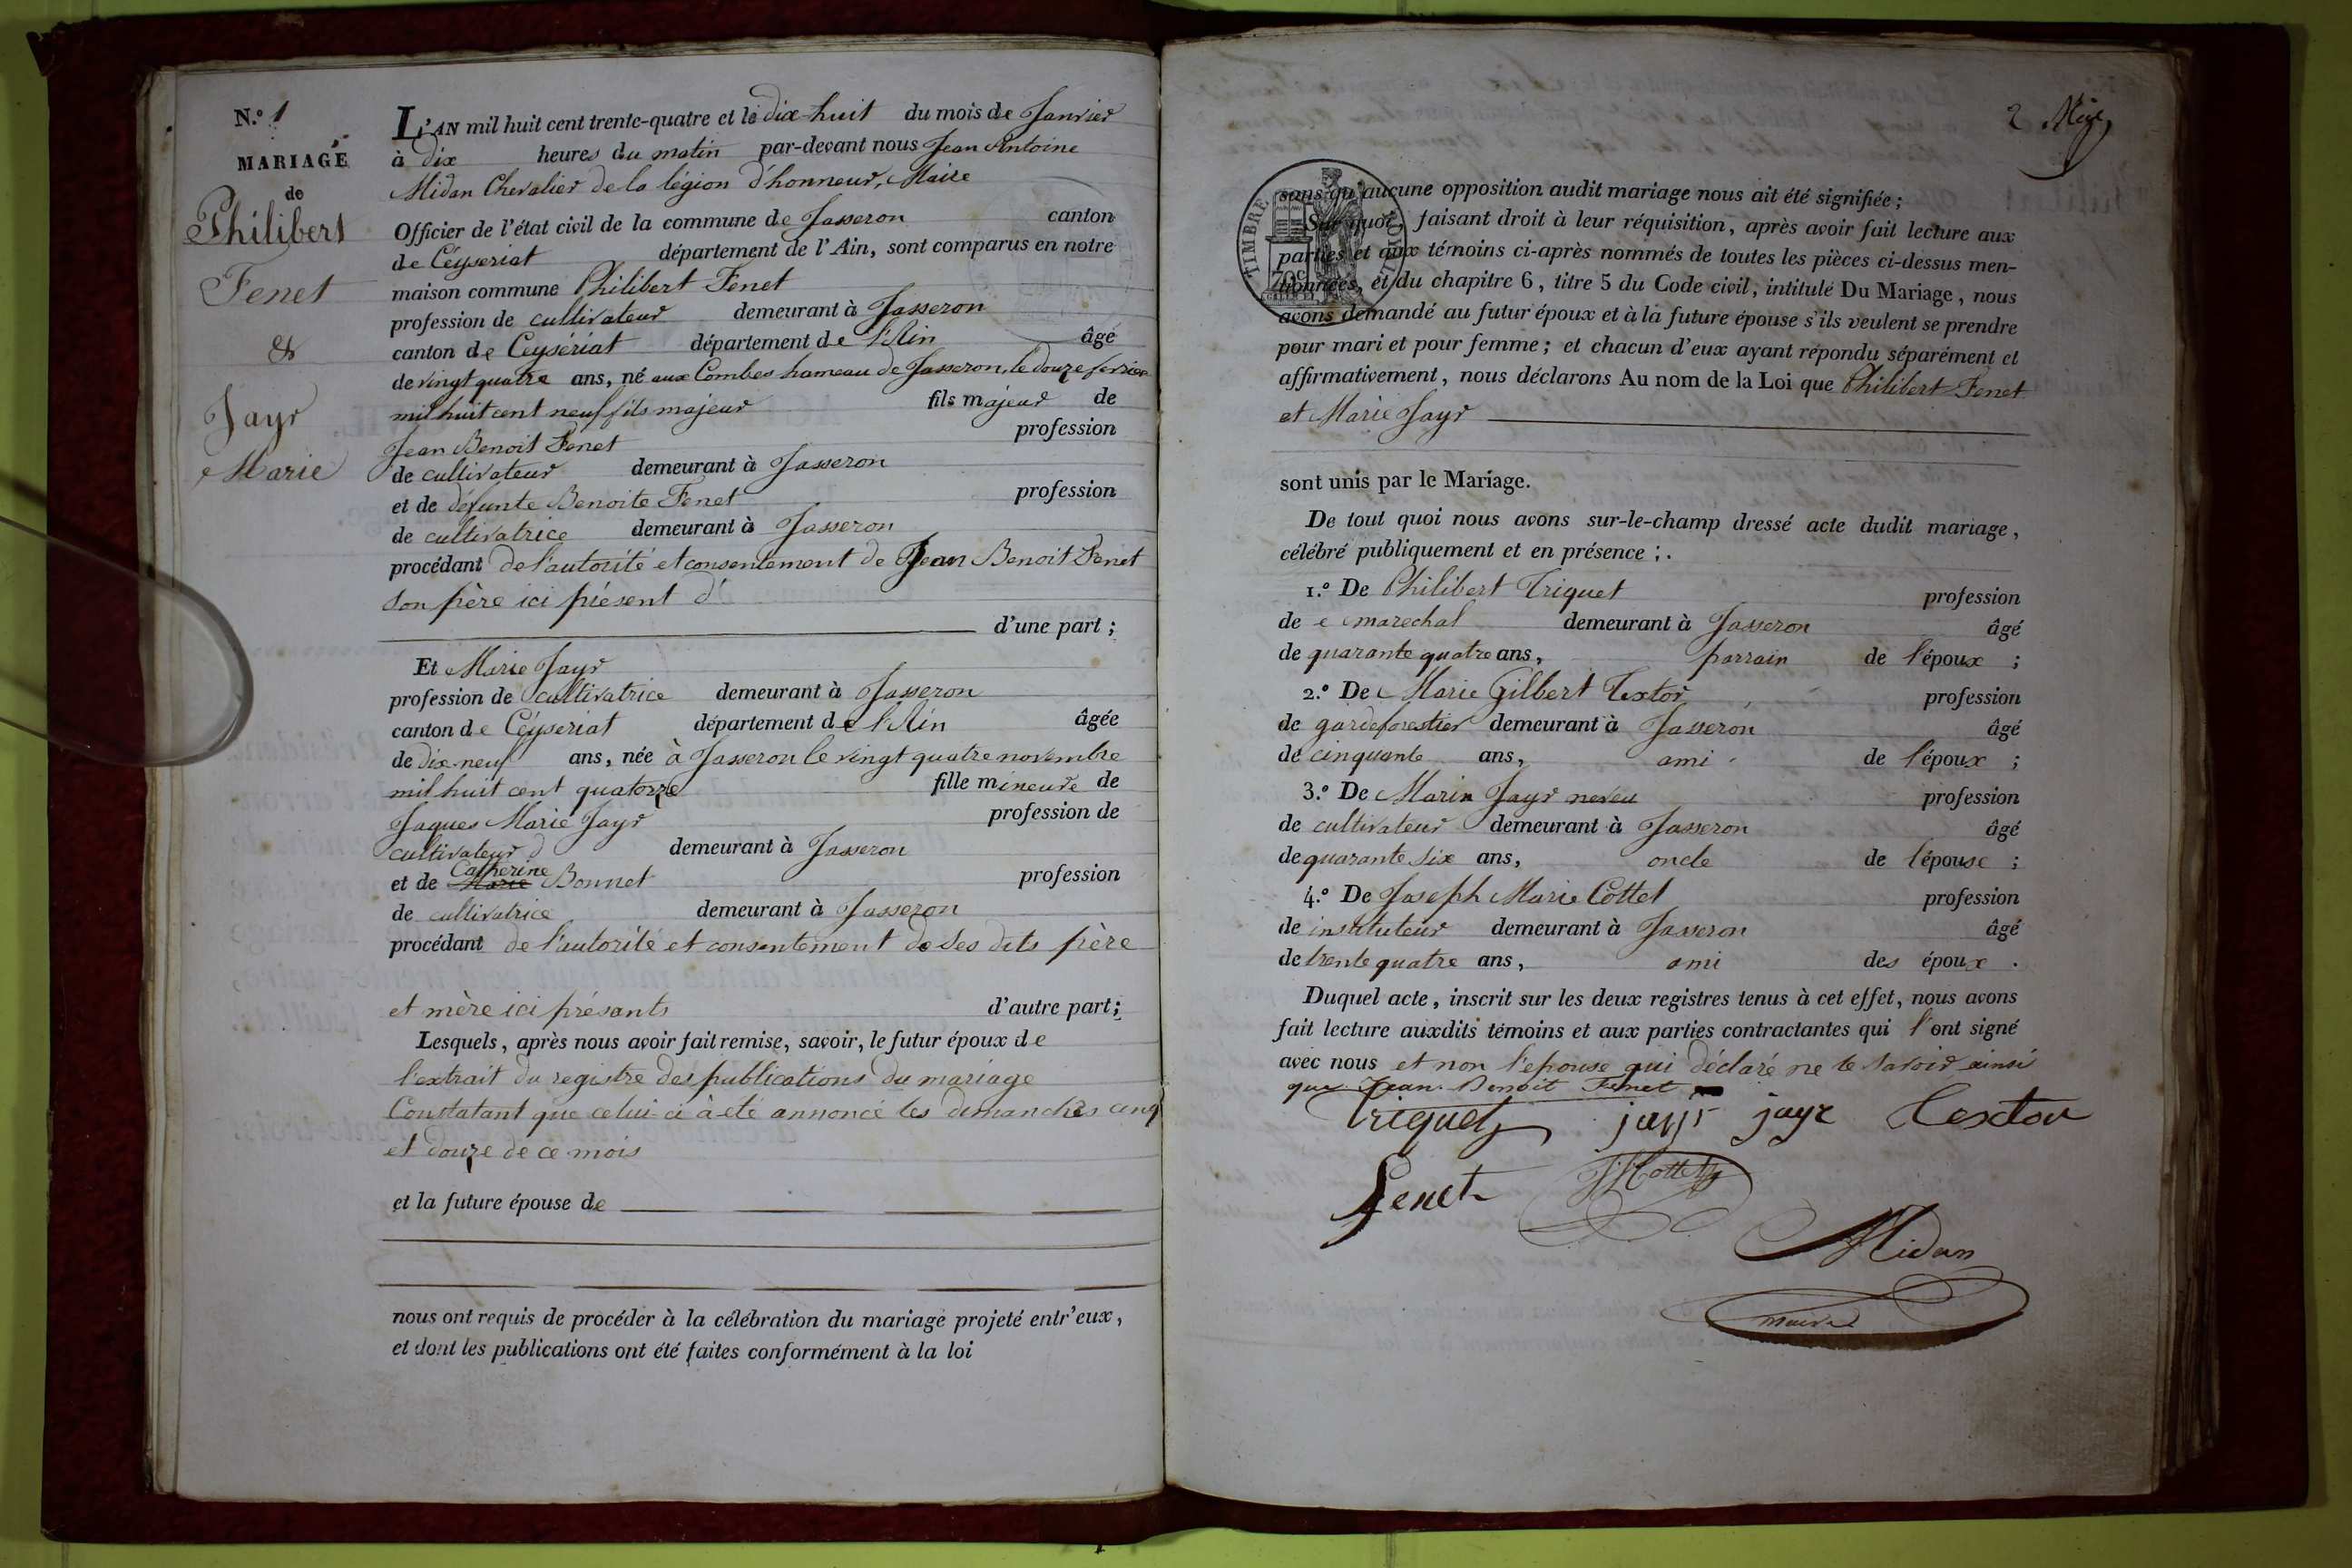 N.º 1
MARIAGE
de
Philibert
Fenet
&
Jayr
Marie
L'AN mil huit cent trente-quatre et le dix huit du mois de Janvier
à dix heures du matin par-devant nous Jean Antoine
Midan Chevalier de la légion d'honneur, Maire
Officier de l'état civil de la commune de Jasseron canton
de Céyseriat département de l'Ain, sont comparus en notre
maison commune Philibert Fenet
profession de cultivateur demeurant à Jasseron
canton de Ceysériat département de l'Ain âgé
de vingt quatre ans, né aux Combes hameau de Jasseron, le douze fevrier
mil huit cent neuf fils majeur fils majeur de
Jean Benoit Fenet profession
de cultivateur demeurant à Jasseron
et de défunte Benoite Fenet profession
de cultivatrice demeurant à Jasseron
procédant de l'autorité et consentement de Jean Benoit Fenet
son père ici présent d'
d'une part ;
Et Marie Jayr
profession de cultivatrice demeurant à Jasseron
canton de Céyseriat département de l'Ain âgée
de dix-neuf ans, née à Jasseron le vingt quatre novembre
mil huit cent quatorze fille mineure de
Jaques Marie Jayr profession de
cultivateur d demeurant à Jasseron
Catherine
et de Marie Bonnet profession
de cultivatrice demeurant à Jasseron
procédant de l'autorité et consentement de ses dits père
et mère ici présants d'autre part ;
Lesquels, après nous avoir fait remise, savoir, le futur époux de
l'extrait du registre des publications du mariage
Constatant que celui-ci à été annoncé les dimanches cinq
et douze de ce mois
et la future épouse de
nous ont requis de procéder à la célébration du mariage projeté entr'eux,
et dont les publications ont été faites conformément à la loi
2
TIMBRE
70c
sans qu'aucune opposition audit mariage nous ait été signifiée ;
Sur quoi, faisant droit à leur réquisition, après avoir fait lecture aux
parties et aux témoins ci-après nommés de toutes les pièces ci-dessus men-
tionnées, et du chapitre 6, titre 5 du Code civil, intitulé Du Mariage, nous
avons demandé au futur époux et à la future épouse s'ils veulent se prendre
pour mari et pour femme ; et chacun d'eux ayant répondu séparément et
affirmativement, nous déclarons Au nom de la Loi que Philibert Fenet
et Marie Jayr
sont unis par le Mariage.
De tout quoi nous avons sur-le-champ dressé acte dudit mariage,
célébré publiquement et en présence ;.
1.º De Philibert Triquet profession
de marechal demeurant à Jasseron âgé
de quarante quatre ans, parrain de l'époux ;
2.º De Marie Gilbert Textor profession
de gardeforestier demeurant à Jasseron âgé
de cinquante ans, ami de l'époux ;
3.º De Marin Jayr neveu profession
de cultivateur demeurant à Jasseron âgé
de quarante six ans, oncle de l'épouse ;
4.º De Joseph Marie Cottet profession
de instituteur demeurant à Jasseron âgé
de trente quatre ans, ami des époux .
Duquel acte, inscrit sur les deux registres tenus à cet effet, nous avons
fait lecture auxdits témoins et aux parties contractantes qui l'ont signé
avec nous et non l'épouse qui déclaré ne le savoir ainsi
que Jean Benoit Fenet
Triquet jayr jayr Textor
Fenet JMCottet
Midan
maire